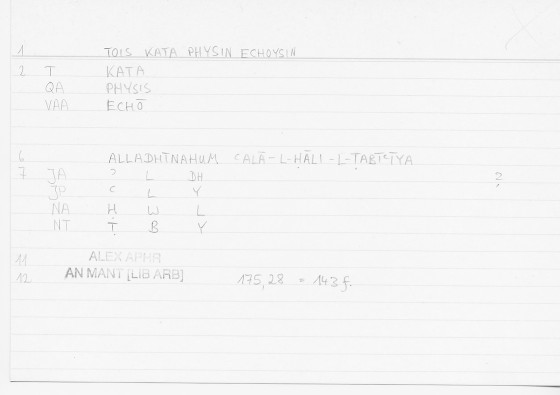 1 TOIS KATA PHYSIN ECHOYSIN
2 T KATA
QA PHYSIS
VAA ECHŌ
6 ALLADHĪNAHUM ʿALĀ-L-ḤĀLI-L-ṬABĪʿĪYA
7 JA ʾ L DH 2
JO ʿ L Y
NA Ḥ W L
NT Ṭ B Y
11 ALEX APHR
12 AN MANT [LIB ARB] 175,28 = 143 f.